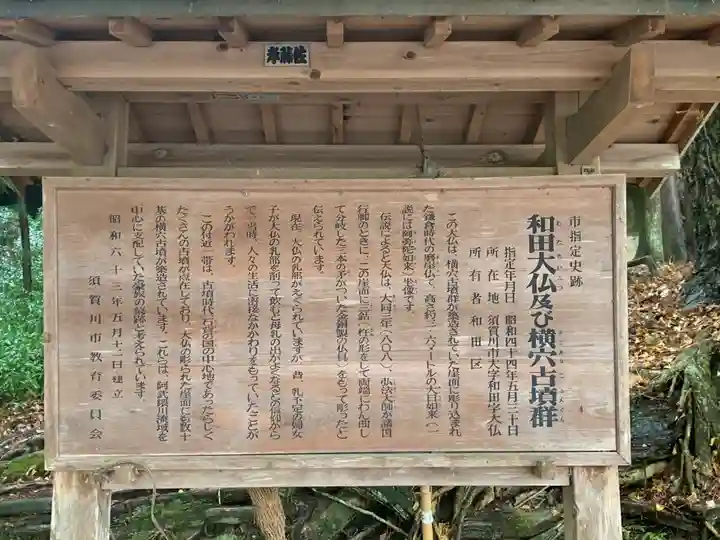 市指定史跡
和田大仏及び横穴古墳群
指定年月日 昭和四十四年五月三十日
所在地 須賀川市大字和田字大仏
所有者 和田区
この大仏は、横穴古墳群が築造されていた崖面に彫り込まれ
た鎌倉時代の磨崖仏で、高さ約三・六メートルの大日如来(一
説には阿弥陀如来)坐像です。
伝説によると大仏は、大同三年(八〇八)、弘法大師が諸国
行脚のときに、この崖面に三鈷(杵の形をして両端はわん曲し
て分岐した三本の爪がついた金銅製の仏具)をもって彫ったと
伝えられています。
現在、大仏の乳部がえぐられていますが、昔、乳不足の婦女
子が大仏の乳部を削って飲むと母乳の出がよくなるとの信仰から
で、当時、人々の生活に密接なかかわりをもっていたことが
うかがわれます。
この付近一帯は、古墳時代、石背国の中心地であったらしく
たくさんの古墳が混在しており、大仏の彫られた崖面にも数十
基の横穴古墳が築造されています。これらは、阿武隈川流域を
中心に支配していた豪族の墳跡と考えられています。
昭和六十三年五月十二日建立
須賀川市教育委員会